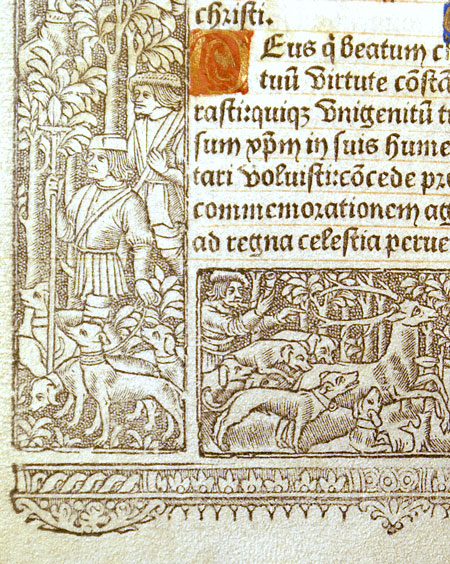 christi.
DEus q̃ beatum c
tuũ virtute cõstã
rasti:quiqʒ vnigenitũ t
sum xp̃m in suis hume
tari voluisti:cõcede pre
commemorationem ag
ad regna celestia perue